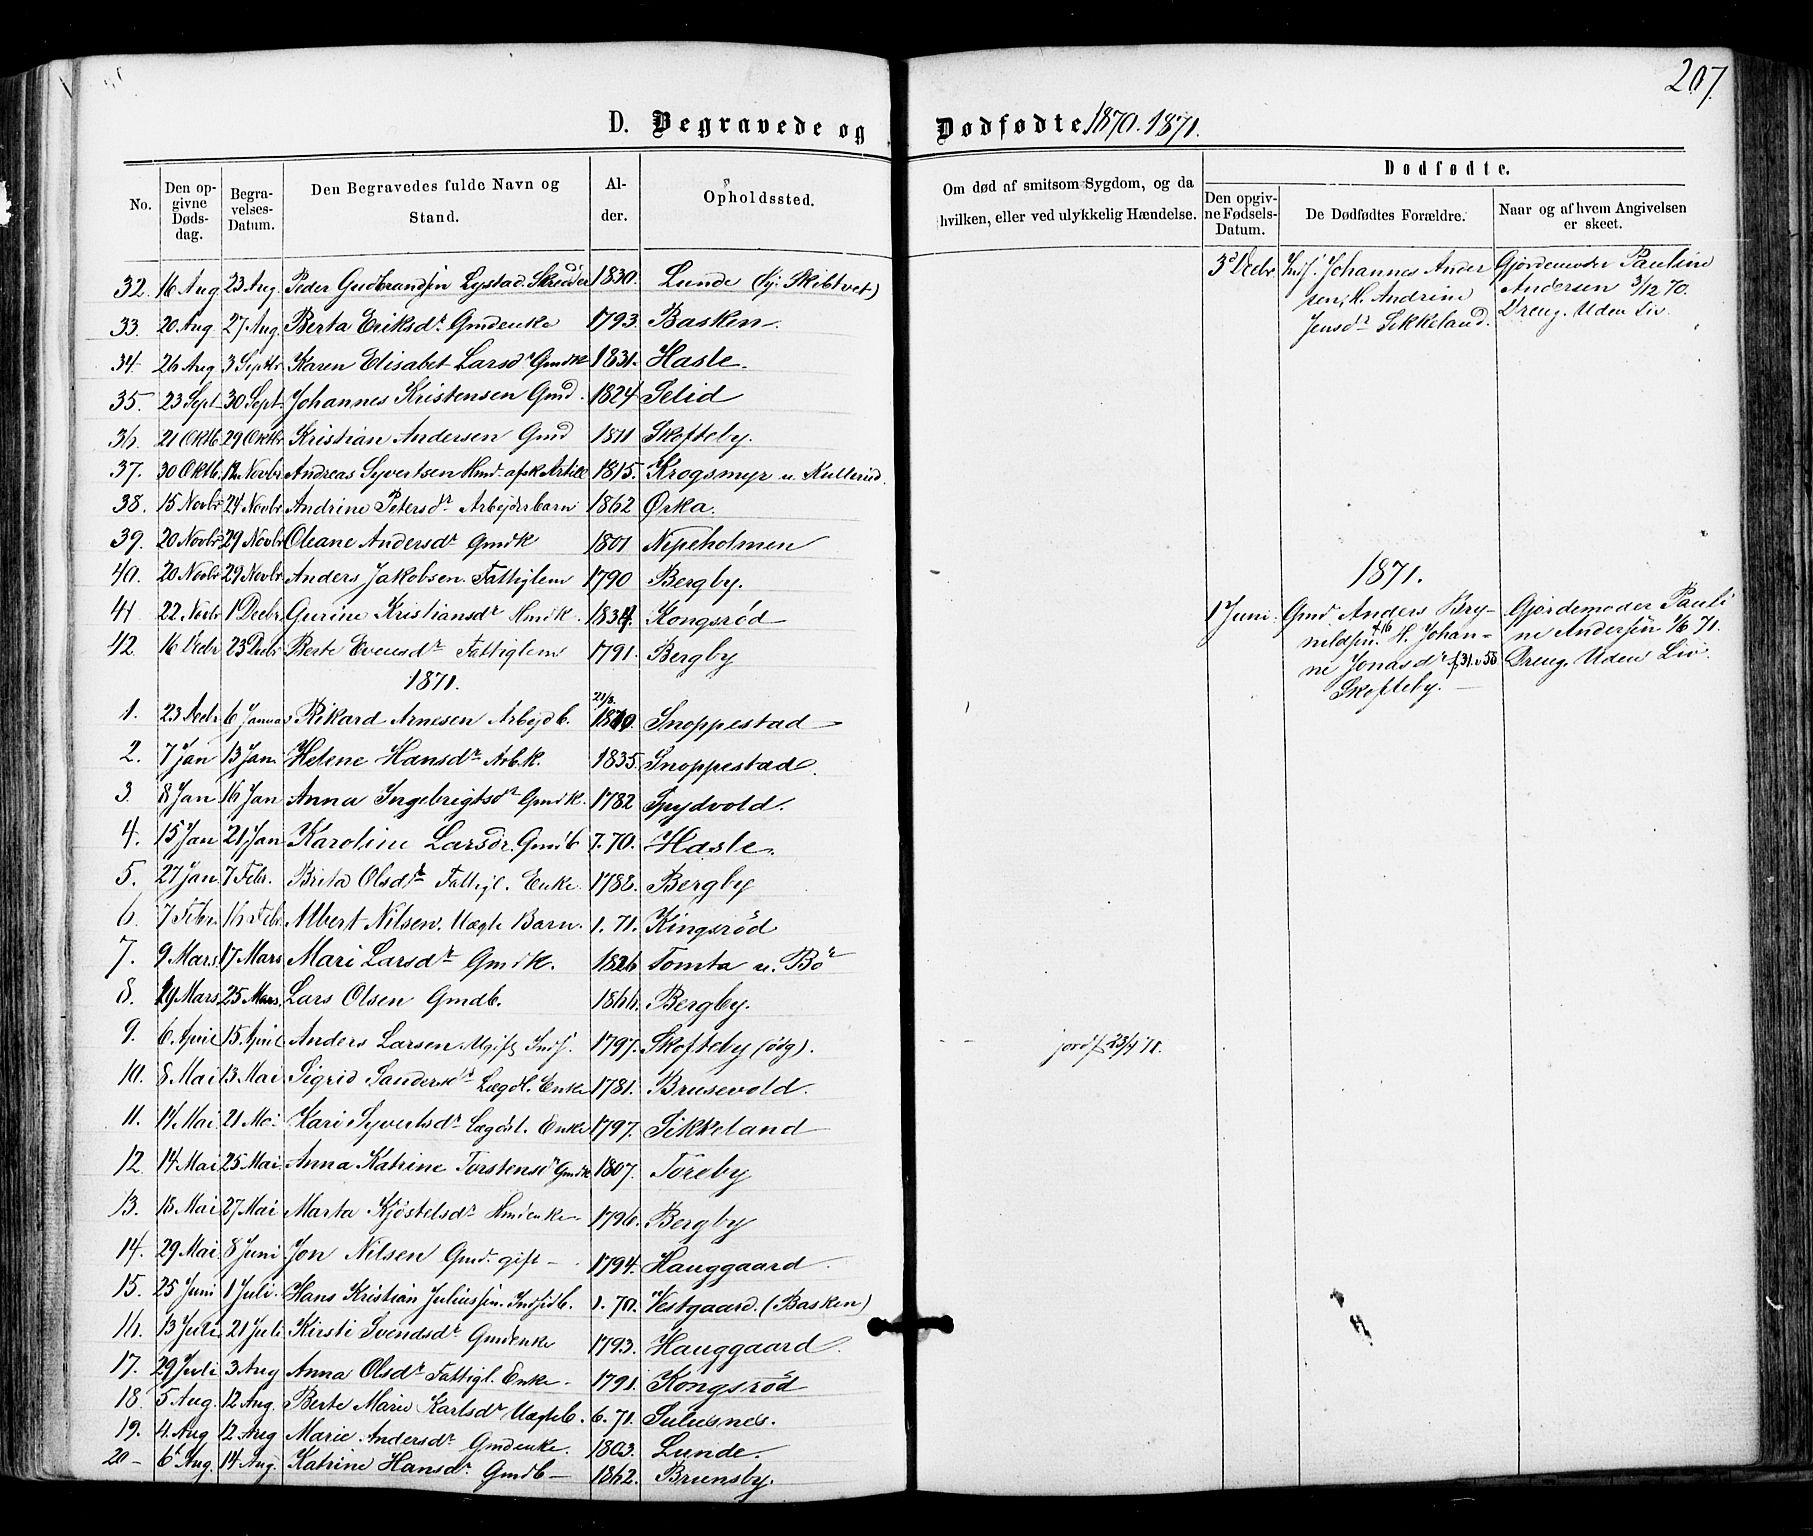 207.
D. Begravede og Dødfødte 1870. 1871.
No.
Den opgivne Dødsdag.
Begravelses-Datum.
Den Begravedes fulde Navn og Stand.
Alder.
Opholdssted.
Om død af smitsom Sygdom, og da hvilken, eller ved ulykkelig Hændelse.
Dødfødte.
Den opgivne Fødsels-Datum.
De Dødfødtes Forældre.
Naar og af hvem Angivelsen er skeet.
32. 16 Aug 23 Aug. Peder Gudbrandsen Lystad. Skrædder 1830. Lunde (Skibtvet)
33. 20 Aug 27 Aug. Berta Eriksdr Gmdenke 1793. Basken.
34. 26 Aug 3 Septbr Karen Elisabet Larsdr Gmdk 1831. Hasle.
35. 23 Sept 30 Sept. Johannes Kristensen Gmd. 1824 Selid
36. 21 Oktb 29 Oktbr Kristian Andersen Gmd 1811 Skofteby.
37. 30 Oktb. 12 Novbr Andreas Syvertsen Hmd. afsk Artill 1815. Krogsmyr u. Kullerud.
38. 15 Novbr 24 Novbr Andrine Petersdr Arbejderbarn 1862 Ørka.
39. 20 Novbr 29 Novbr Oleane Andersdr Gmdk 1801 Nipeholmen
40. 20 Novbr 29 Novbr Anders Jakobsen. Fattiglem 1790 Bergby.
41 22 Novbr 1 Decbr Gurine Kristiansdr Hmdk. 1834. Kongsrød
42. 16 Decbr 23 Decbr Berte Evensdr Fattiglem 1791. Bergby
1871.
1. 23 Decbr 6 Januar Rikard Arnesen Arbejdb. 21/8. 1870. Snoppestad
2. 7 Jan 13 Jan. Helene Hansdr Arb.k. 1835. Snoppestad.
3. 8 Jan 16 Jan Anna Ingebrigtsdr Gmdk. 1782 Spydvold.
4. 15 Jan 21 Jan Karoline Larsdr. Gmdb 7. 70. Hasle.
5. 27 Jan 7 Febr. Brita Olsdr Fattigl. Enke. 1788. Bergby
6. 7 Febr. 16 Febr Albert Nilsen. Uægte Barn. 1. 71. Kingsrød
7. 9 Mars 17 Mars Mari Larsdr Gmdk. 1826 Tomta u. Bør
8. 19 Mars 25 Mars. Lars Olsen Gmdb. 1866. Bergby.
9. 6 April 15 April Anders Larsen. Ugift Inds. 1797. Skofteby (ødg). jordf 23/4 71.
10. 8 Mai 13 Mai Sigrid Sandersdr Lægdl. Enke 1781. Brusevold.
11. 14 Mai 21 Mai Kari Syvertsdr Lægdsl. Enke 1797. Sikkeland
12. 14 Mai 25 Mai. Anna Katrine Torstensdr Gmdk 1807. Toreby
13. 18 Mai 27 Mai Marta Kjøstelsdr Hmdenke. 1796. Bergby
14. 29 Mai 8 Juni Jon Nilsen Gmd. gift - 1794. Hauggaard.
15. 25 Juni 1 Juli. Hans Kristian Juliussen. Indsidb. 1. 70. Vestgaard. (Basken)
16. 13 Juli 21 Juli Kirsti Svendsdr Gmdenke 1793. Hauggaard.
17. 29 Juli 3 Aug Anna Olsdr Fattigl. Enke. 1791. Kongsrød
18. 5 Aug. 12 Aug. Berte Marie Karlsdr Uægteb. 6. 71. Sulusnes.
19. 4 Aug 12 Aug Marie Andersdr Gmdenke. 1803. Lunde.
20 - 6 Aug. 14 Aug. Katrine Hansdr Gmdb - 1862. Brunsby.
3 Decbr Inds. Johannes Ander
sen, H. Andrine
Jensdr Sikkeland.
Gjordemoder Pauline
Andersen 3/12 70.
Dreng. Uden Liv.
1871.
1 Juni. Gmd. Anders Bry-
nildsen f. 16 H. Johan-
ne Jonasdr f 31.
Skofteby.
Gjordemoder Pauli
ne Andersen 1/6 71.
Dreng. Uden Liv.